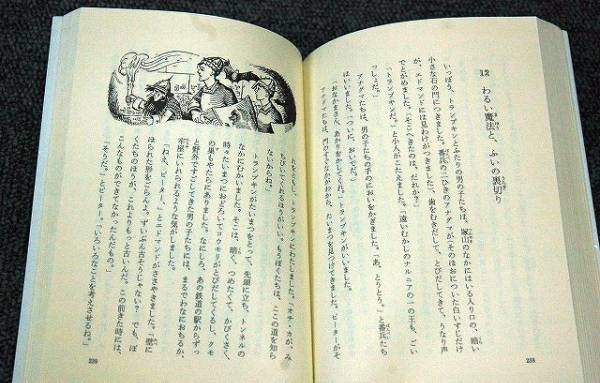 12 わるい魔法と、ふいの裏切り
いっぽう、トランプキンとふたりの男の子たちは、塚山のなかにはいる入り口の、暗い
小さな石の門につきました。番兵の二ひきのアナグマが(そのほおについた白いすじだけ
が、エドマンドには見わけがつきました)、歯をむきだして、とびだしてきて、うなり声
でとがめました。「そこへきたのは、だれか?」
「トランプキンだ。」と小人がこたえました。「遠いむかしのナルニアの一の王も、ごい
っしょだ。」
アナグマたちは、男の子たちの手のにおいをかぎました。「あ、とうとう。」と番兵たち
はいいました。「ついに、おいでだ。」
「おなかまさん、あかりをかしてくれ。」トランプキンがいいました。
アナグマたちは、門のすぐなかがわで、たいまつを見つけてきました。ピーターがそ
238
れをともして、トランプキンにわたしました。「オチ・カが、み
ちびいてくれるほうがいい。もうぼくたちは、ここの道を知ら
ないからね。」
トランプキンがたいまつをとって、先頭に立ち、トンネルの
なかにはいりました。そこは、暗く、つめたくて、かびくさく、
時々たいまつにおどろいてコウモリがとびだしてくるし、クモ
の巣もやたらにありました。なにしろ、あの鉄道の駅からずっ
と野外ですごしてきた男の子たちには、まるでわなにおちるか、
牢屋にいれられるような気がしました。
「ねえ、ピーター。」とエドマンドがささやきました。「壁に
ほられた形をごらんよ。ずいぶん古そうじゃない? でも、ぼ
くたちのほうが、これよりもっと古いんだ。この前きた時には、
こんなものができてなかったんだもの。」
「そうだ。」とピーター。「いろいろなことを考えさせるね。」
239